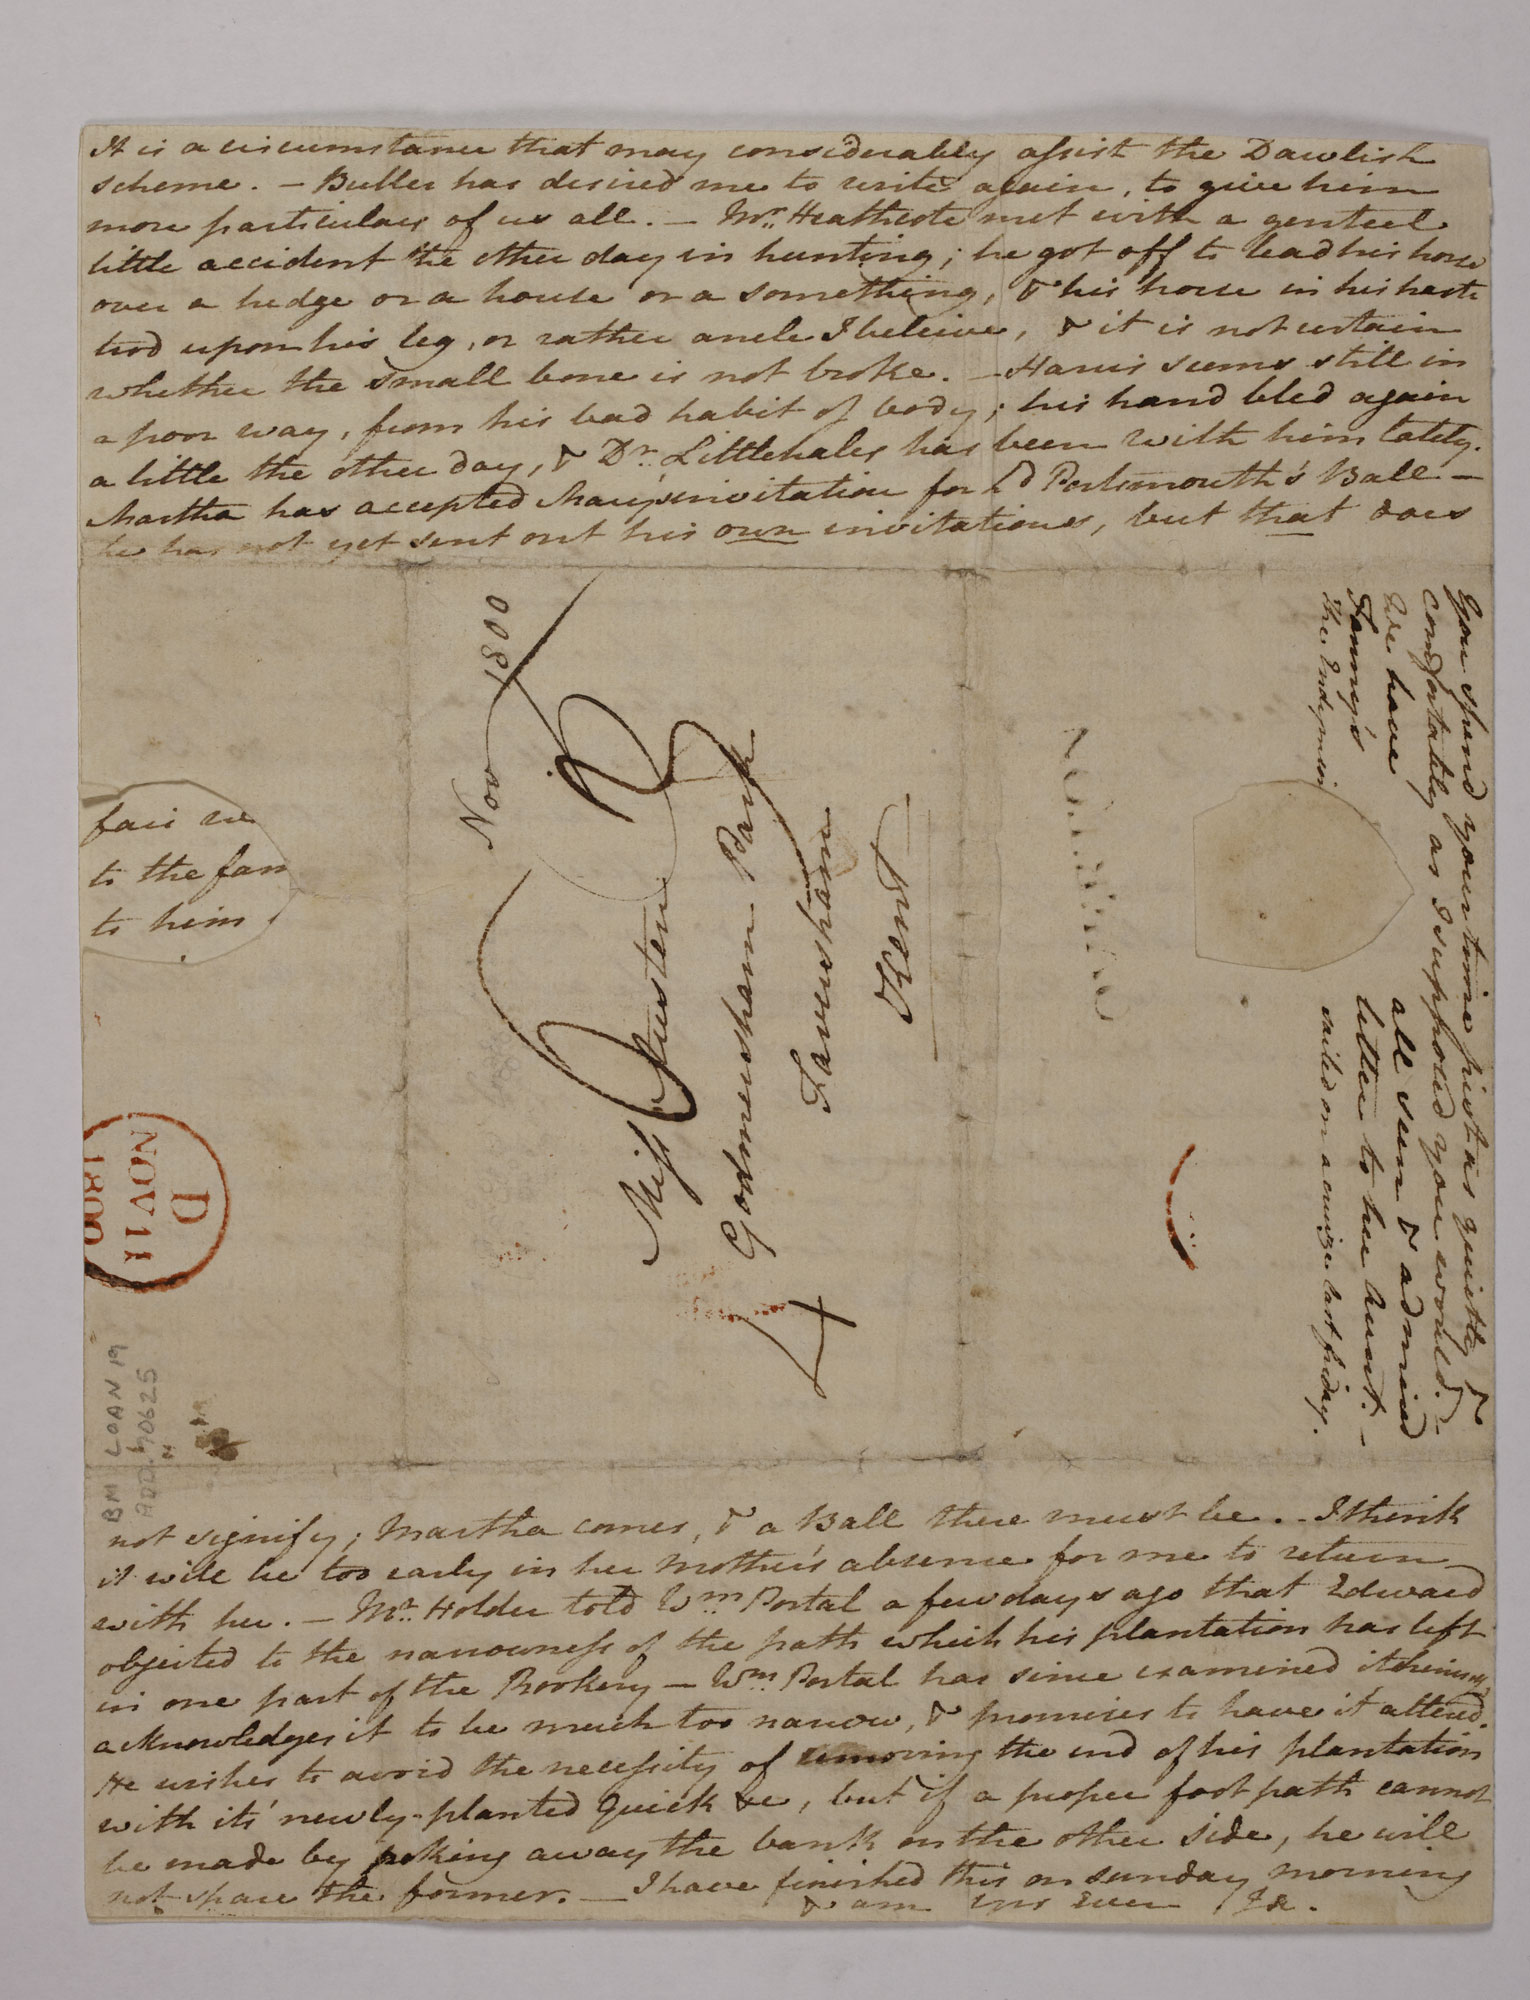 It is a circumstance that may considerably assist the Dawlish
scheme. — Buller has desired me to write again, to give him
more particulars of us all. — Mr. Heathcote met with a genteel
little accident the other day in hunting; he got off to lead his horse
over a hedge or a house or a something, & his horse in his haste
trod upon his leg, or rather ancle I beleive, & it is not certain
whether the small bone is not broke. — Harris seems still in
a poor way, from his bad habit of body; his hand bled again
a little the other day, & Dr. Littlehales has been with him lately.
Martha has accepted Mary's invitation for Ld Portsmouth's Ball —
he has not yet sent out his own invitations, but that does
Novr 1800
Miss Austen
Godmersham Park
Faversham
Kent
4
fair we
to the fam
to him.
D
NOV 11
1800
BM LOAN 19
ADD. 70625
You spend your time just as quietly &
comfortably as I supposed you would. —
We have all seen & admired
Fanny's letter to her Aunt. —
The Endymion sailed on a cruize last friday.
not signify; Martha comes, & a Ball there must be. — I think
it will be too early in her Mother's absence for me to return
with her. — Mr. Holder told Wm. Portal a few days ago that Edward
objected to the narrowness of the path which his plantation has left
in one part of the Rookery — Wm. Portal has since examined it himself,
acknowledges it to be much too narrow, & promises to have it altered.
He wishes to avoid the necessity of removing the end of his plantation
with it's newly-planted Quick &c, but if a proper footpath cannot
be made by poking away the bank on the other side, he will
not spare the former. — I have finished this on sunday morning
& am yrs Ever JA.